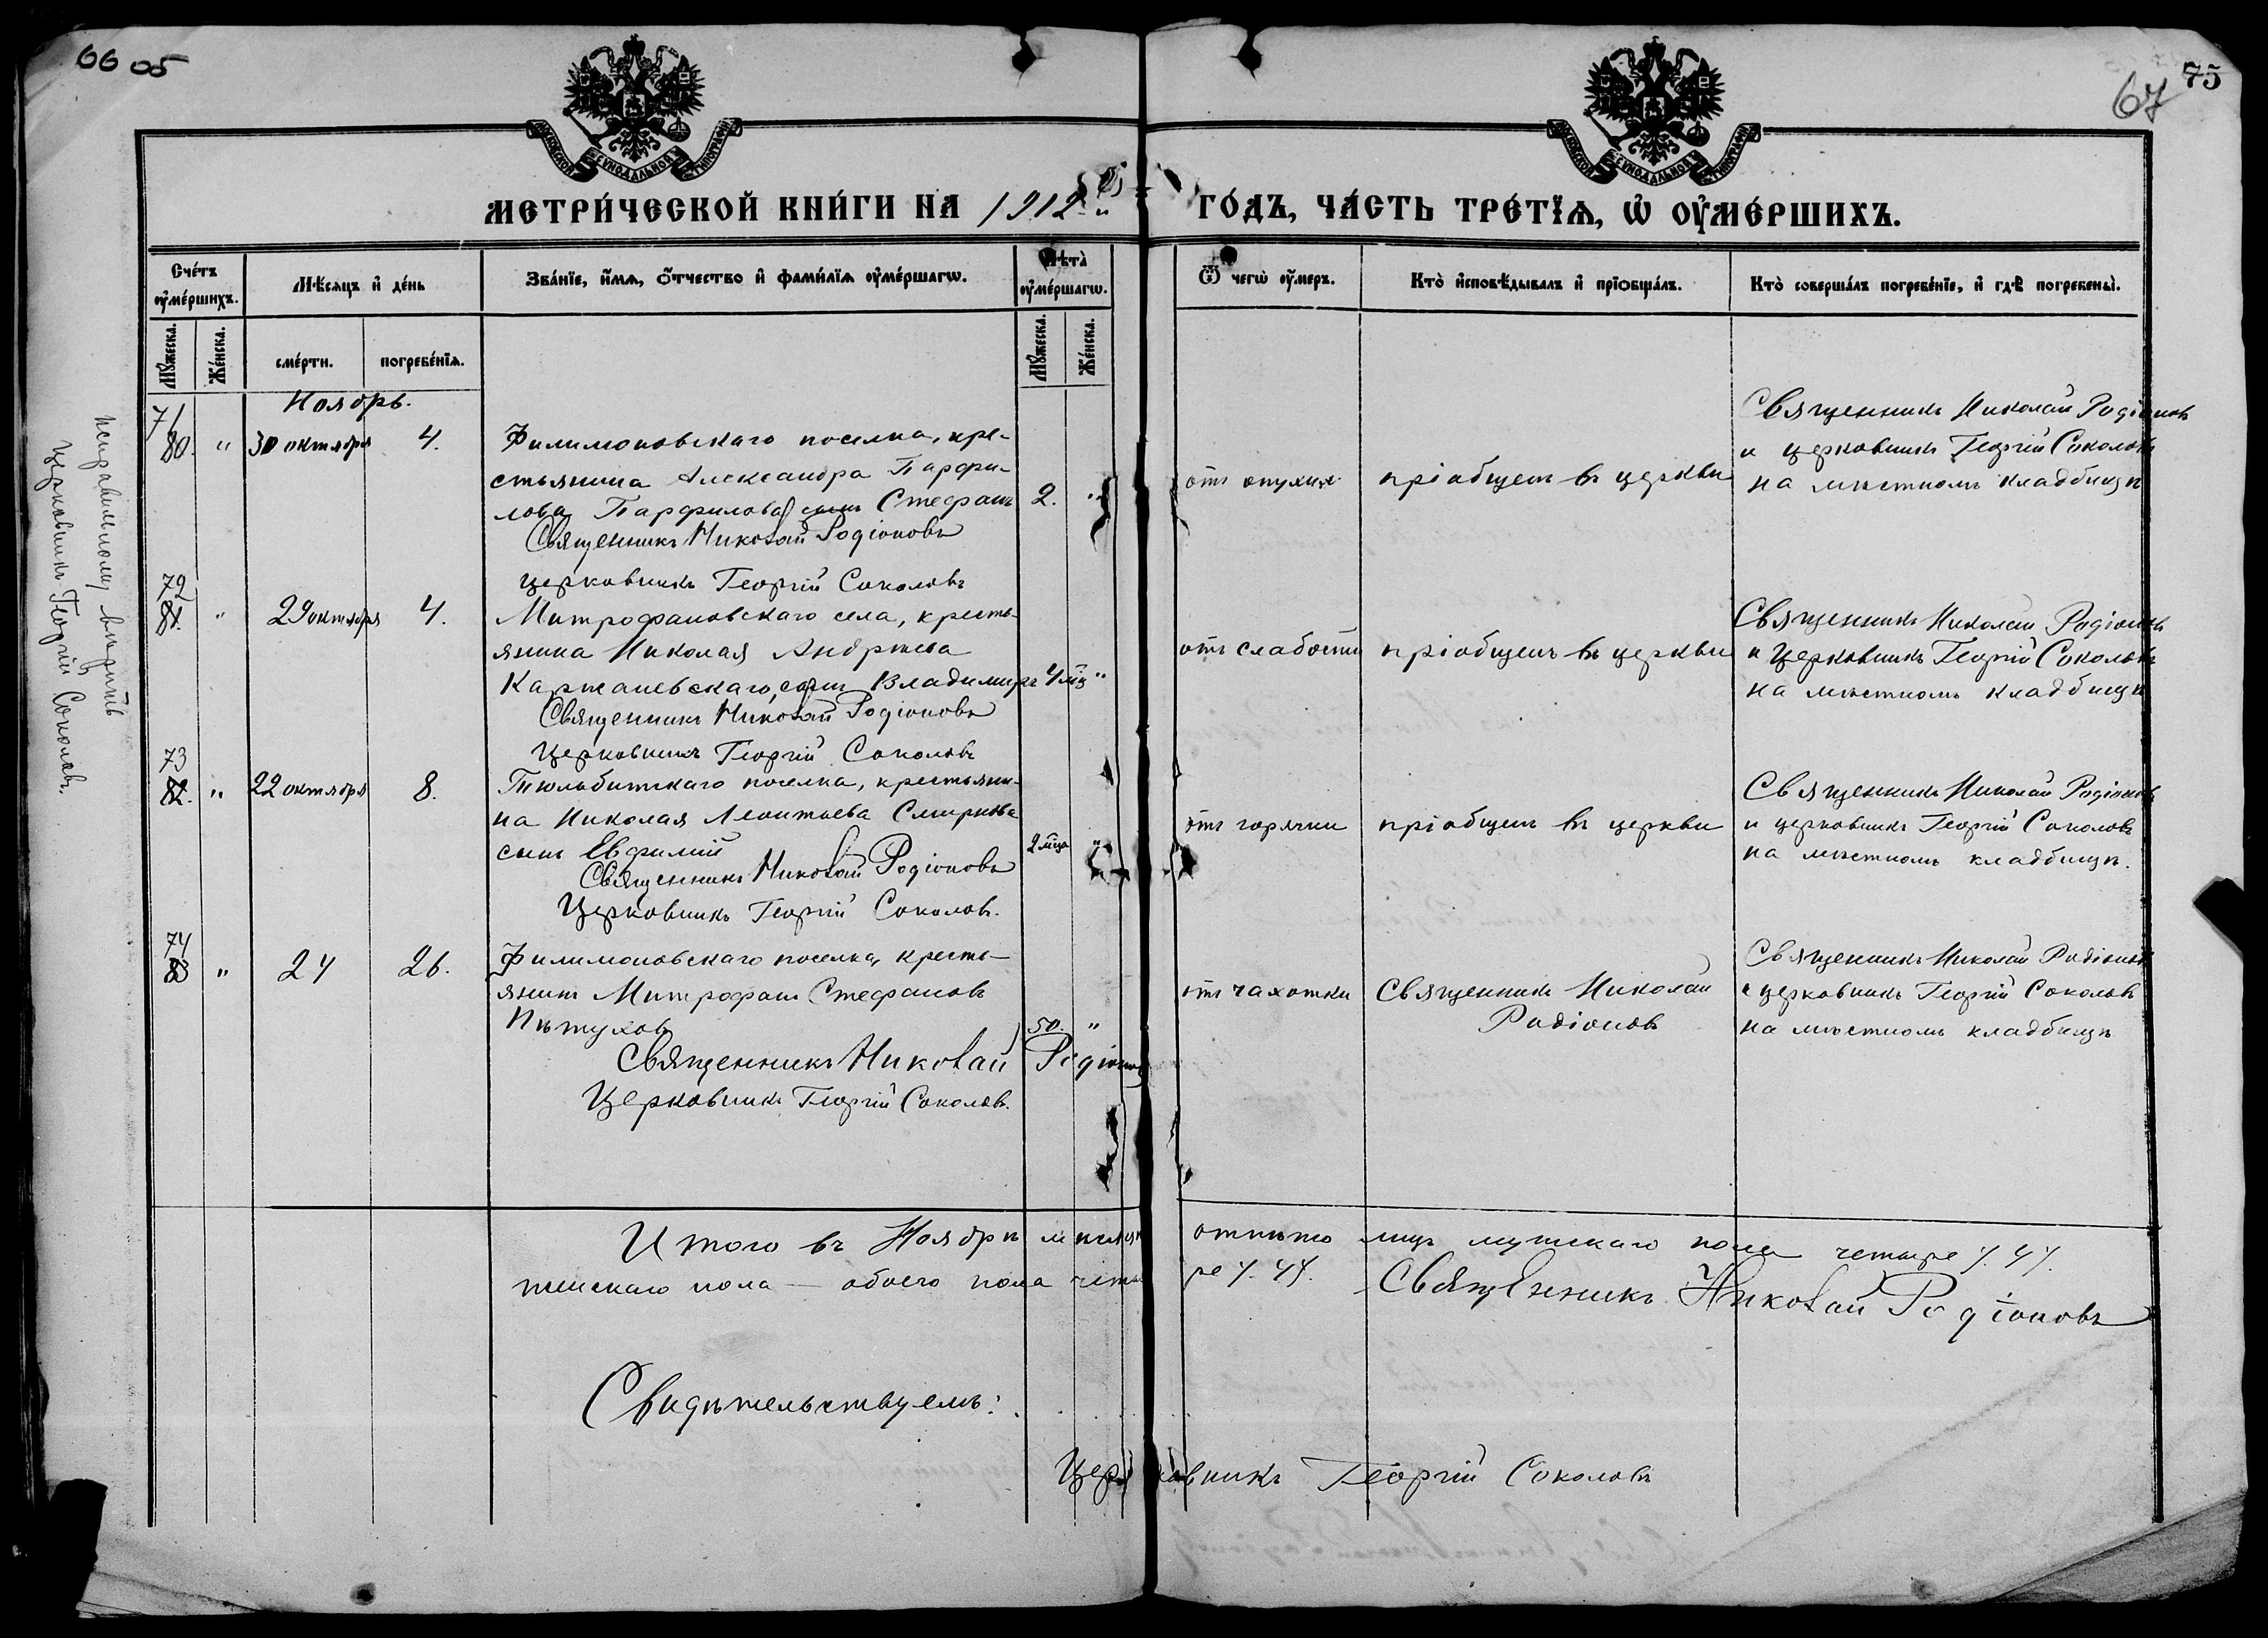 66 об
67 75
МОСКОВСКОЙ СѴНОДАЛЬНОЙ ТИПОГРАФІИ
МОСКОВСКОЙ СѴНОДАЛЬНОЙ ТИПОГРАФІИ
МЕТРИ́ЧЕСКОЙ КНИ́ГИ НА 1912-й ГО́ДЪ, ЧА́СТЬ ТРЕ́ТЇѦ, Ѡ҆ ОУ҆МЕ́РШИХЪ.
Сче́тъ оу҆ме́ршихъ.
Мѣ́сяцъ и҆ де́нь
Зва́нїе, и҆́мѧ, ѻ҆́тчество и҆ фами́лїѧ оу҆ме́ршагѡ.
Лѣ́та оу҆ме́ршагѡ.
Ѿ чегѡ̀ оу҆́меръ.
Кто̀ и҆сповѣ́дывалъ и҆ прїобща́лъ.
Кто̀ соверша́лъ погребе́нїе, и҆ гдѣ̀ погребены̀.
Мꙋ́жеска. Же́нска. сме́рти. погребе́нїѧ. Мꙋ́жеска. Же́нска.
Ноябрь.
71
80. " 30 октября 4.
Филимоновскаго поселка, кре-
стьянина Александра Парфи-
лова Парфилова сынъ Стефанъ 2. "
Священникъ Николай Родіоновъ
Церковникъ Георгій Соколовъ
отъ опухли
пріобщенъ въ церкви
Священникъ Николай Родіоновъ
и церковникъ Георгій Соколовъ
на мѣстномъ кладбищѣ
72
81. " 29 октября 4.
Митрофановскаго села, кресть-
янина Николая Андрѣева
сынъ Владимиръ 4 мц "
Священникъ Николай Родіоновъ
Церковникъ Георгій Соколовъ
отъ слабости
пріобщенъ въ церкви
Священникъ Николай Родіоновъ
и Церковникъ Георгій Соколовъ
на мѣстномъ кладбищѣ
73
82. " 22 октября 8.
поселка, крестьяни-
на Николая Леонтьева Смирнова
сынъ Евфимій 2 мца "
Священникъ Николай Родіоновъ
Церковникъ Георгій Соколовъ.
отъ горячки
пріобщенъ въ церкви
Священникъ Николай Родіоновъ
и церковникъ Георгій Соколовъ
на мѣстномъ кладбищѣ.
74
83 " 24 26.
Филимоновскаго поселка, кресть-
янинъ Митрофанъ Стефановъ
Пѣтуховъ 50. "
Священникъ Николай Родіоновъ
Церковникъ Георгій Соколовъ.
отъ чахотки
Священникъ Николай
Родіоновъ
Священникъ Николай Родіоновъ
и церковникъ Георгій Соколовъ
на мѣстномъ кладбищѣ
Итого въ Ноябрѣ мѣсяцѣ отпѣто лицъ мужскаго пола четыре /. 4 /.
женскаго пола — обоего пола четыре /. 4 /. Священникъ Николай Родіоновъ
Свидѣтельствуемъ:
Церковникъ Георгій Соколовъ
исправленному вѣрить
Церковникъ Георгій Соколовъ.